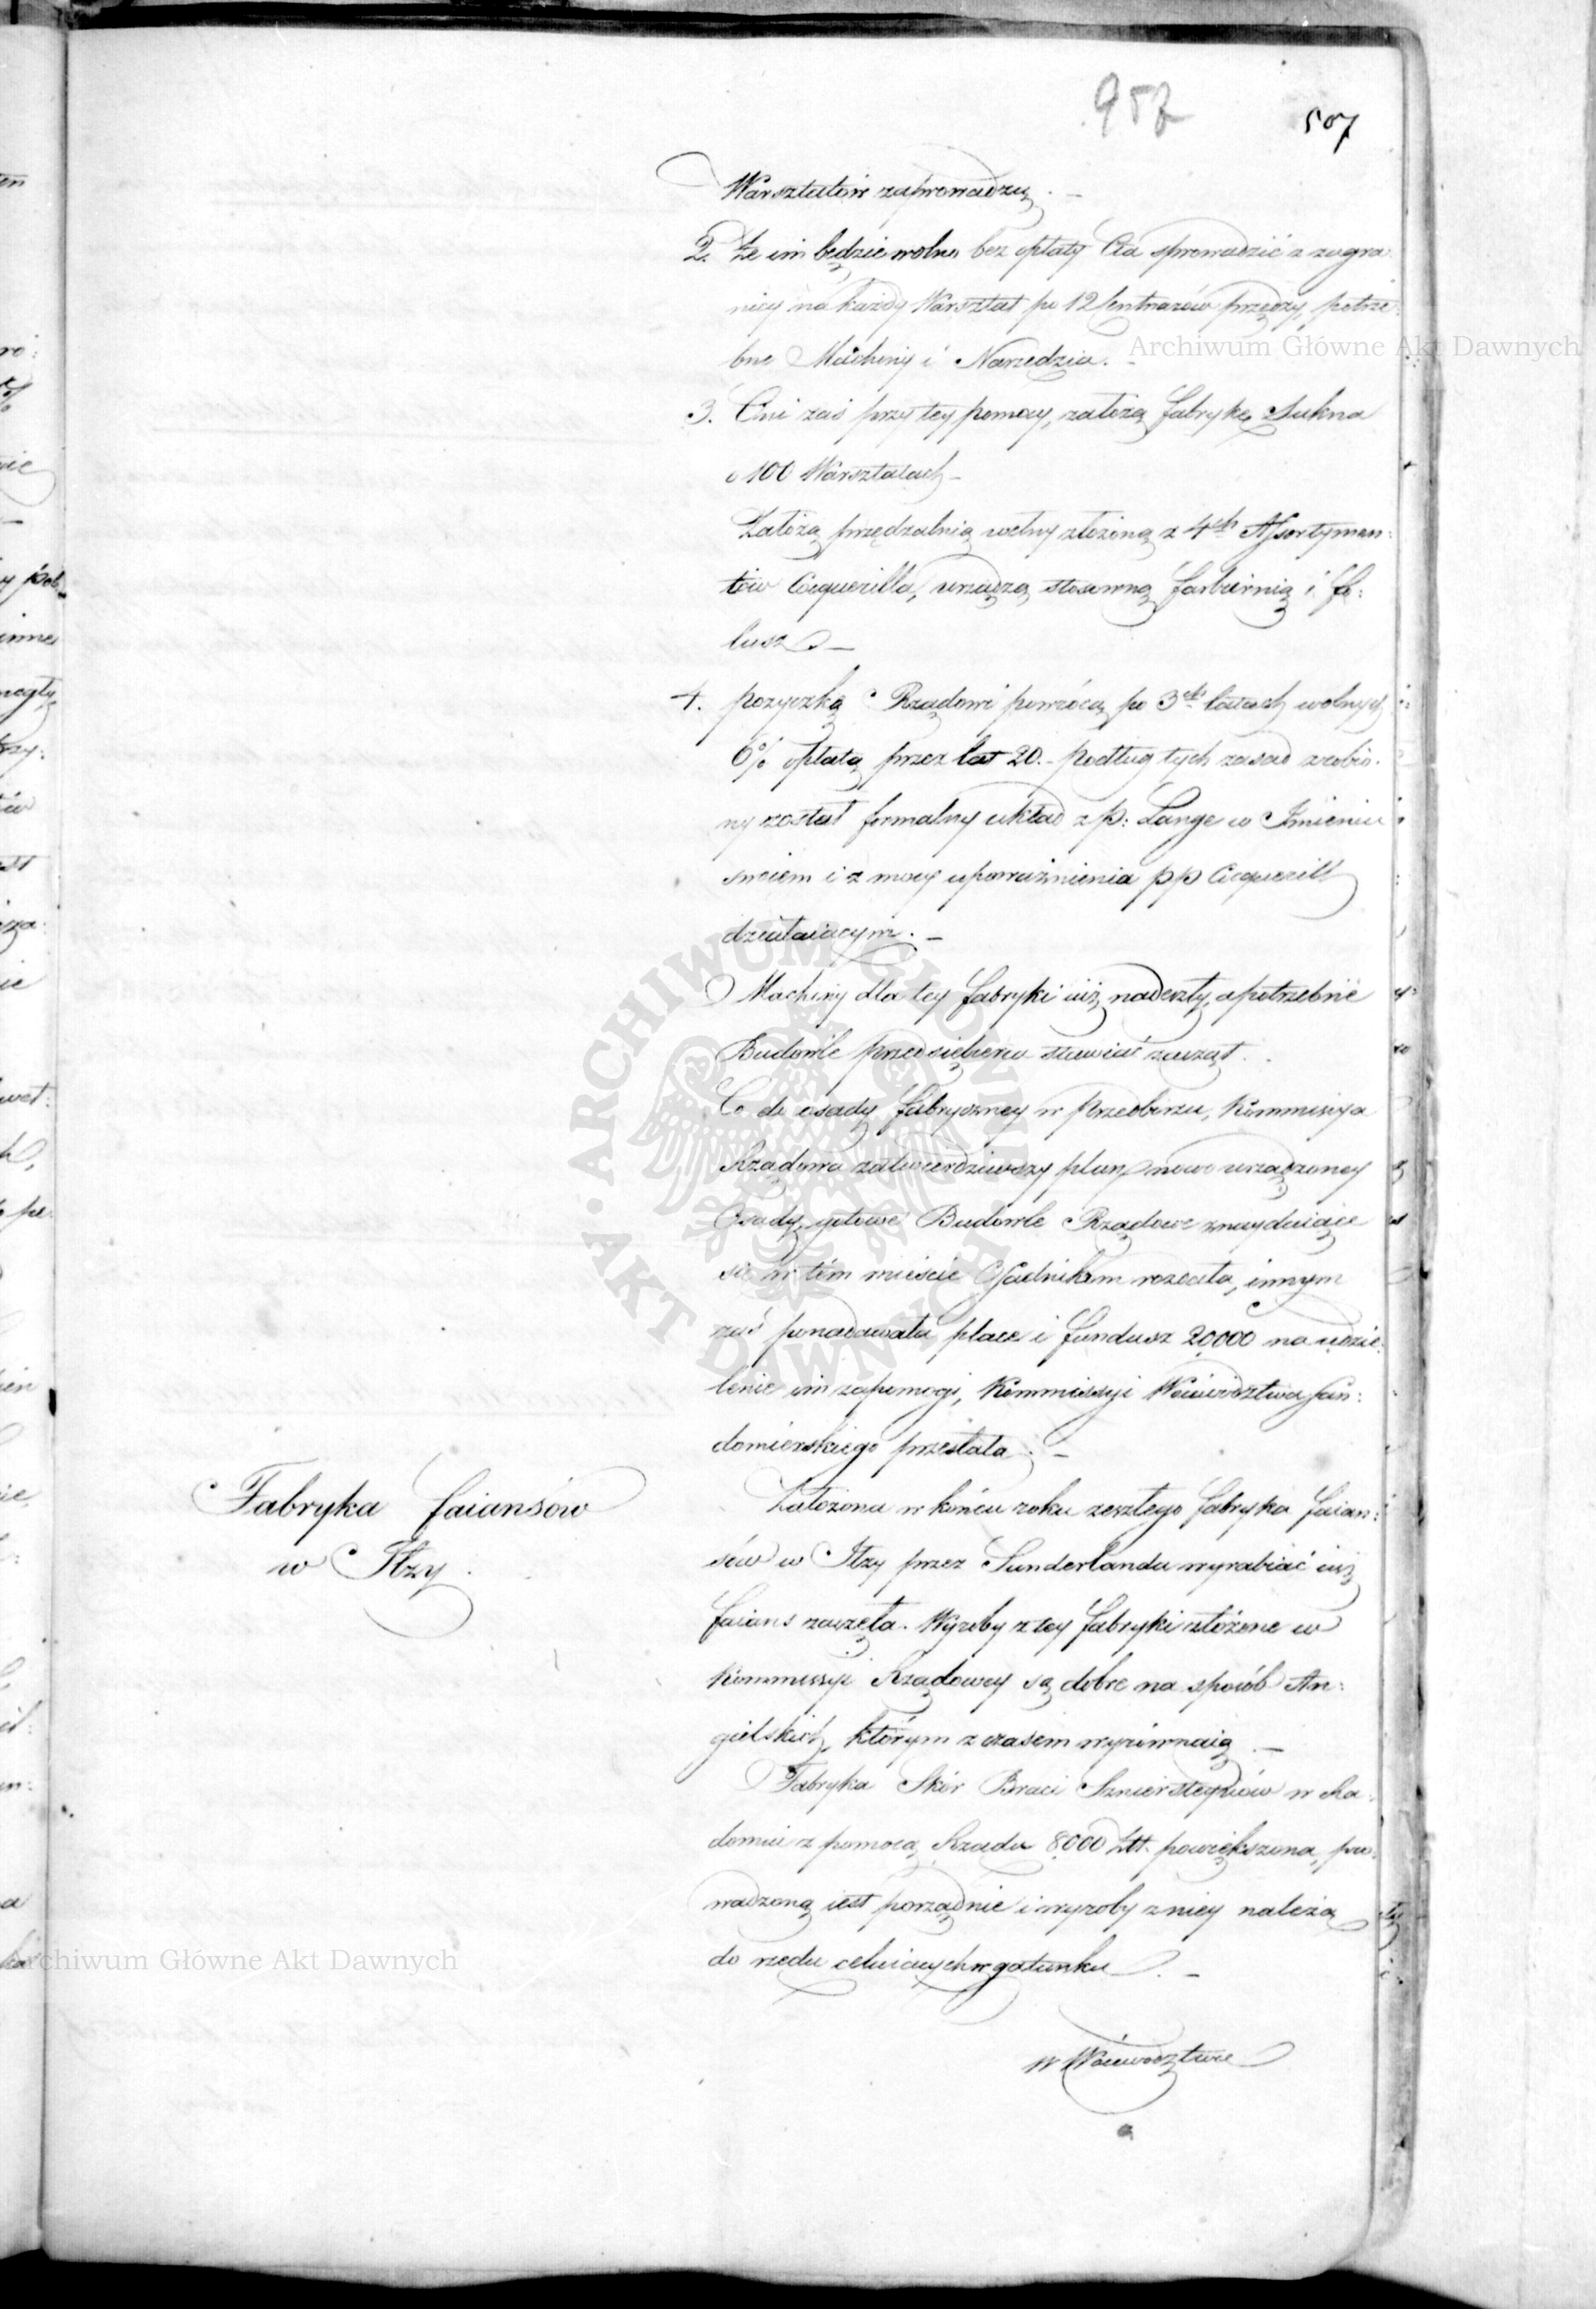 957
507
Warsztatów zaprowadzą. –
2. Że im będzie wolno bez opłaty Cła sprowadzić z zagra:
nicy na każdy Warsztat po 12 Centnarów przędzy, potrze:
bne Machiny i Narzędzia. –
3. Oni zaś przy tey pomocy, założą fabrykę Sukna
o 100 Warsztatach –
Założą przędzalnią wełny złożoną z 4ch Assortymen:
tów Coquerilla, urządzą stosowną farbiernią i fo:
lusz –
4. pożyczką Rządowi powrócą po 3ch latach wolnych
6% opłatą przez lat 20. – podług tych zasad zrobio:
ny został formalny układ z p: Lange w Imieniu
swoiem i z mocy upoważnienia pp Coquerill
działaiącym. –
Machiny dla tey fabryki iuż nadeszły, a potrzebne
Budowle przedsiębierca stawiać zaczął.
Co do osady fabryczney w Przedborzu, Kommissya
Rządowa zatwierdziwszy plan nowo urządzoney
Osady, gotowe Budowle Rządowe znayduiące
się w tém mieście Osadnikom rozdała, innym
zaś ponadawała place i fundusz 20,000 na udzie:
lenie im zapomogi, Kommissyi Woiewództwa San:
domierskiego przesłała. –
Fabryka faiansów
w Iłży.
Założona w końcu roku zeszłego fabryka faian:
sów w Iłży przez Sunderlanda wyrabiać iuż
faians zaczęła. Wyroby z tey fabryki złożone w
Kommissyi Rządowey są dobre na sposób An:
gielskich, którym z czasem wyrównaią. –
Fabryka Skór Braci w Ra:
domiu z pomocą Rządu 8000 Złł. powiększona, pro:
wadzoną iest porządnie i wyroby z niey należą
do rzędu celuiących w gatunku. –
W Woiewództwie
Archiwum Główne Akt Dawnych
Archiwum Główne Akt Dawnych
ARCHIWUM GŁÓWNE AKT DAWNYCH